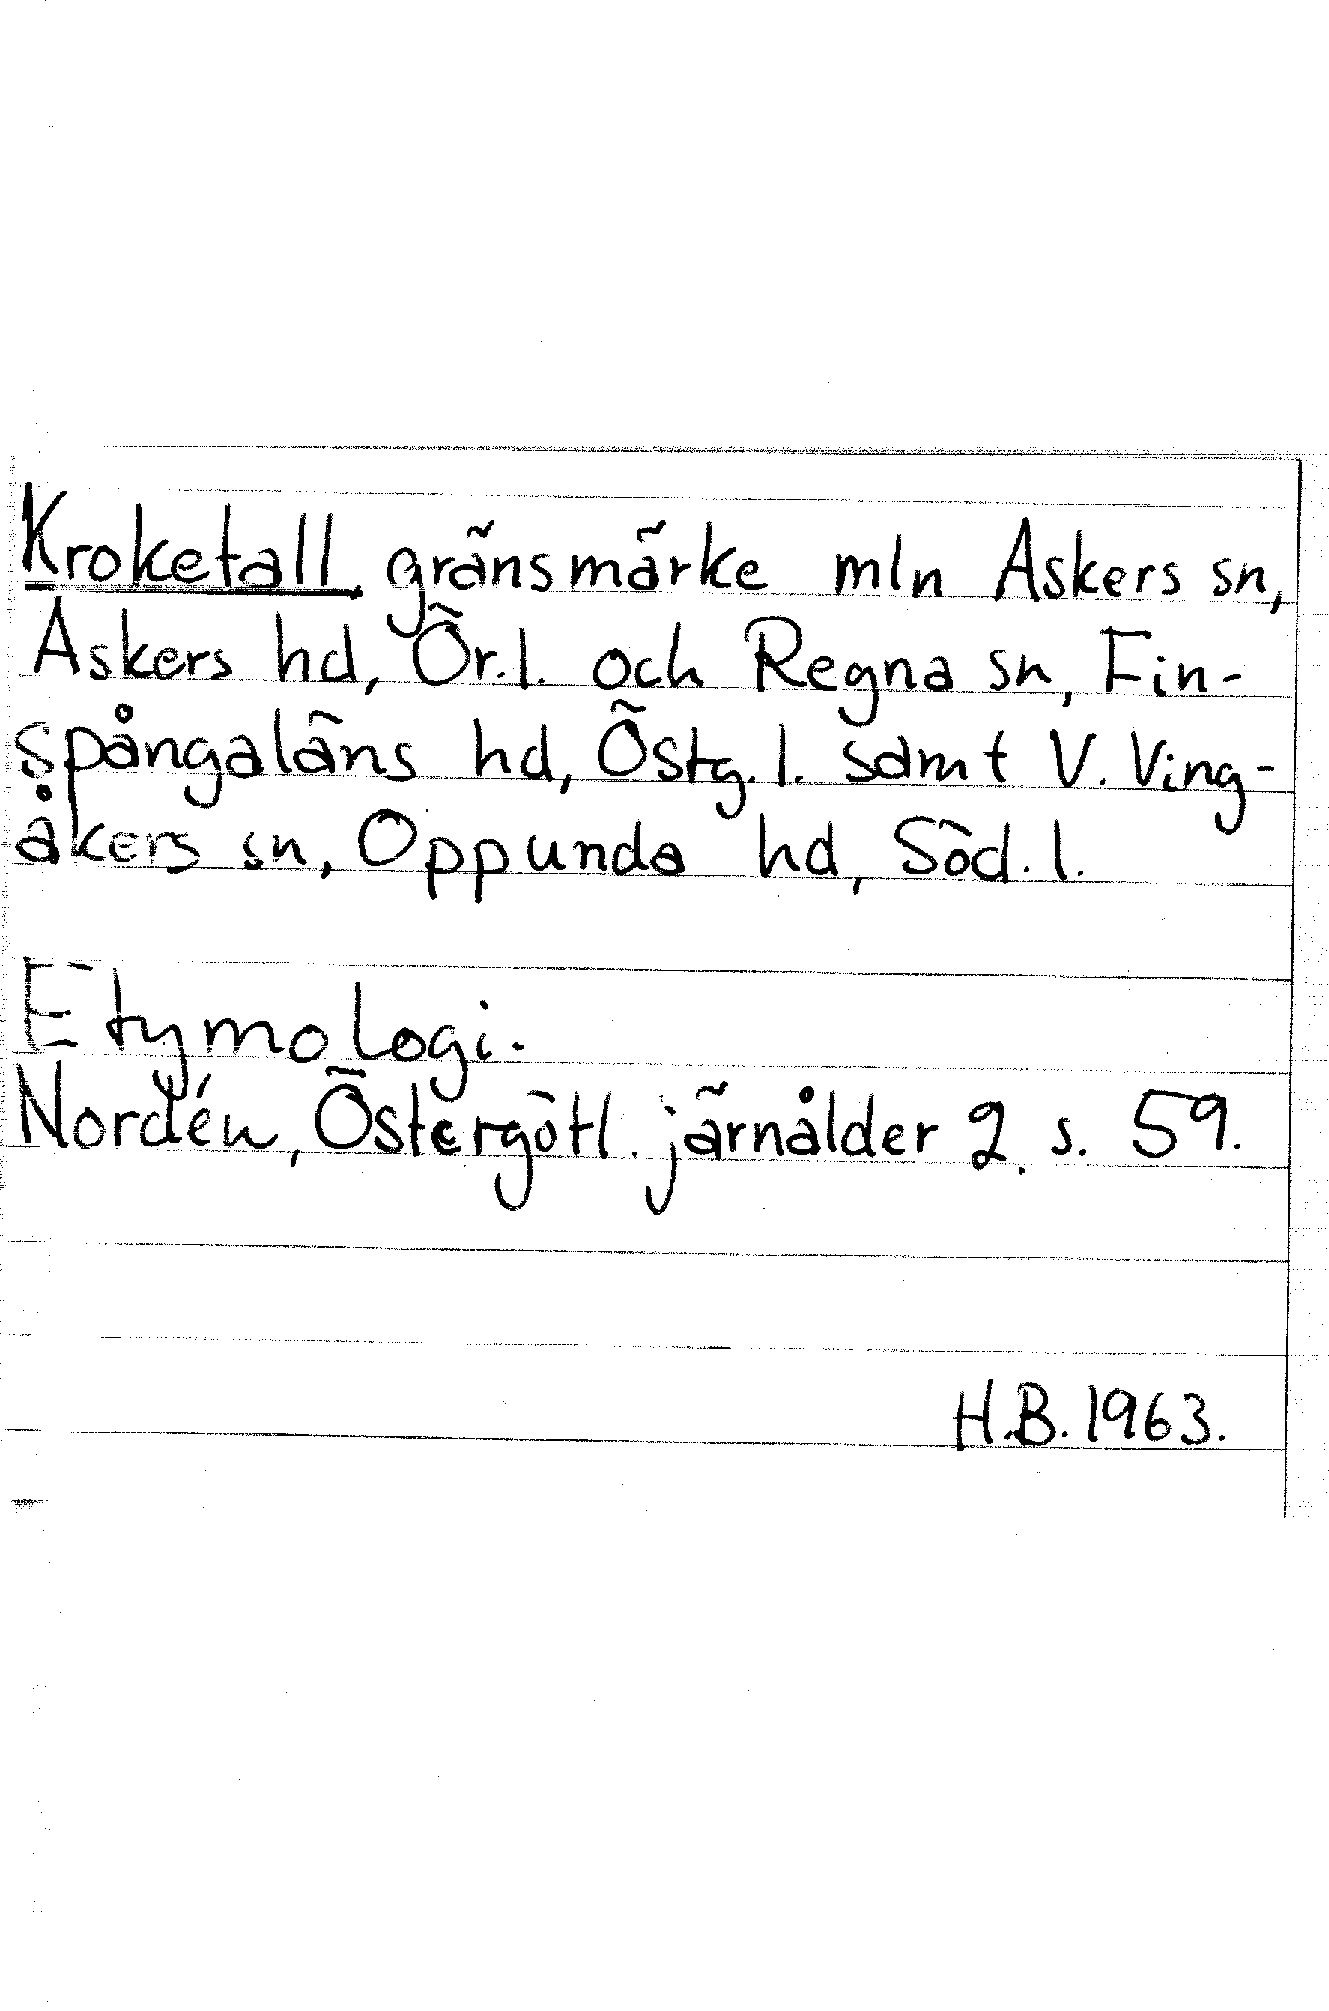 Kroketall gränsmärke mln Askers sn,
Askers hd, Ör.l. och Regna sn, Fin-
spångaläns hd, Östg.l. samt V. Ving-
åkers sn, Oppunda hd, Söd.l.
Etymologi.
Nordén, Östergötl. järnålder 2. s. 59.
H.B. 1963.